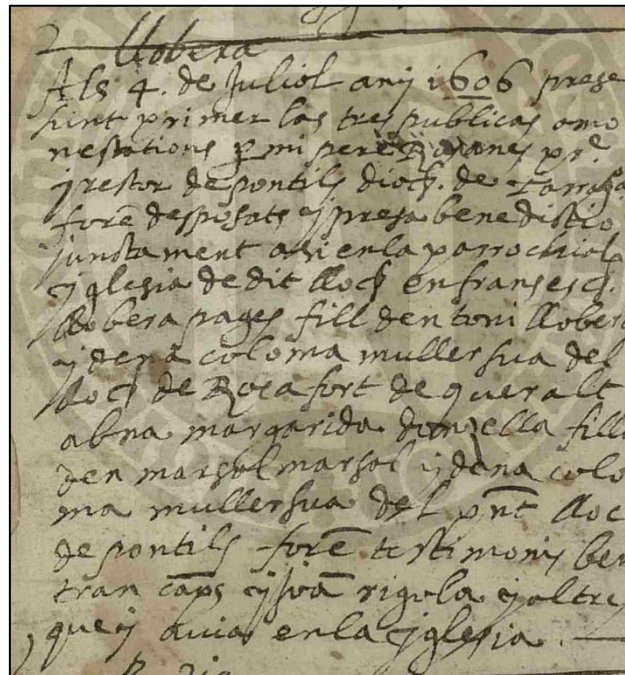 llobera
Als 4. de Juliol any 1606 prese
hint primer las tres publicas amo
nestations p mi pere Romanes pr.e
y restor de pontils dioch. de Tarrag.a
forē desposats y presa benedictio
junctament assi en la parrochial
yglesia de dit lloch en fransesch.
llobera pages fill den toni llobera
y de na coloma muller sua del
lloch de Rocafort de queralt
ab na margarida donzella filla
den marsal marsal y de na colo
ma muller sua del pnt lloc
de pontils forē testimonis ber
tran caps y joā rigola y altres
que y avia en la yglesia.